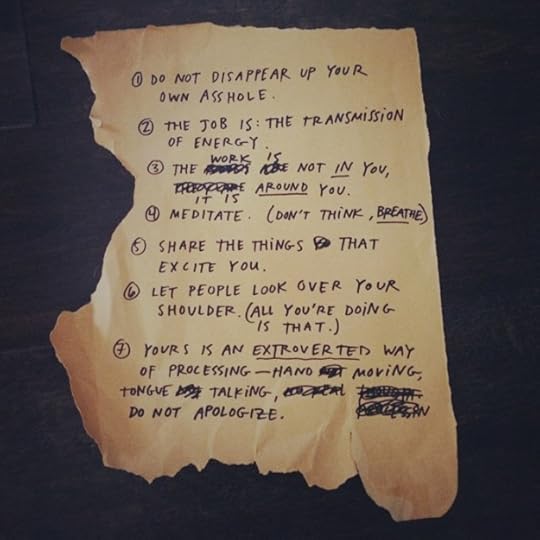 ① DO NOT DISAPPEAR UP YOUR
OWN ASSHOLE.
② THE JOB IS: THE TRANSMISSION
OF ENERGY.
③ THE WORK IS NOT IN YOU,
IT IS AROUND YOU.
④ MEDITATE. (DON'T THINK, BREATHE)
⑤ SHARE THE THINGS THAT
EXCITE YOU.
⑥ LET PEOPLE LOOK OVER YOUR
SHOULDER. (ALL YOU'RE DOING
IS THAT.)
⑦ YOURS IS AN EXTROVERTED WAY
OF PROCESSING — HAND MOVING,
TONGUE TALKING,
DO NOT APOLOGIZE.